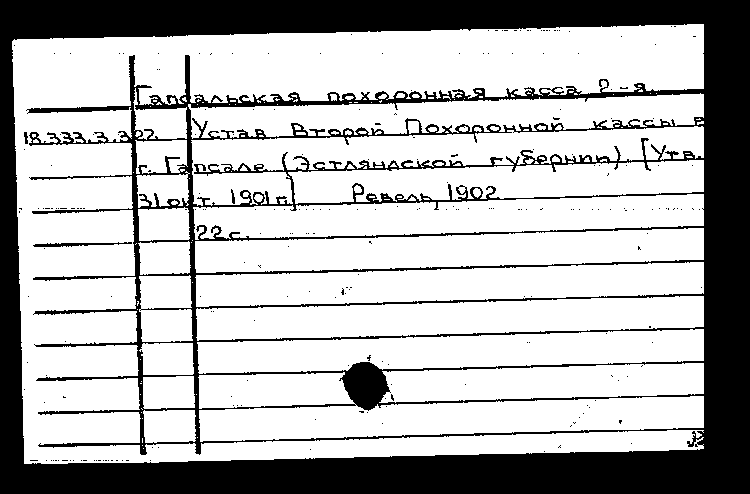 Гапсальская похоронная касса, 2-я.
18.333.3.302 Устав Второй Похоронной кассы в
г. Гапсале (Эстляндской губернии). [Утв.
31 окт. 1901 г.] Ревель, 1902
22 с.